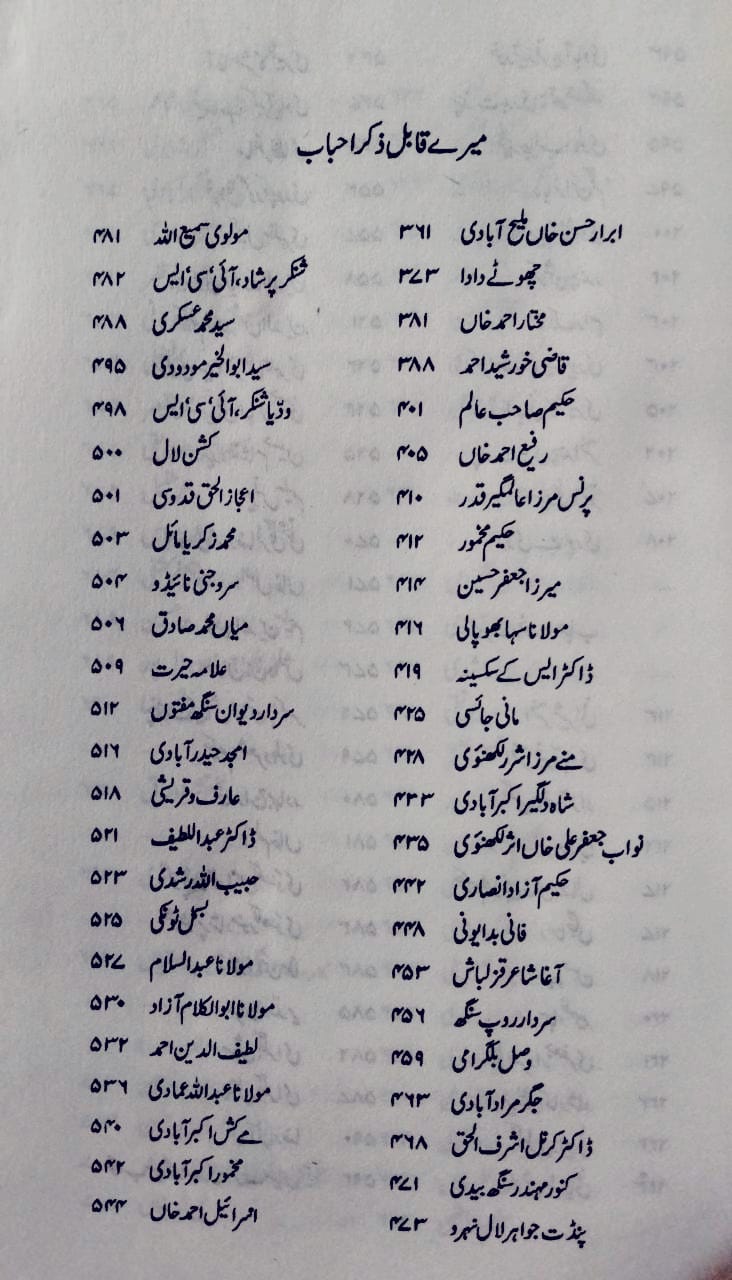 میرے قابل ذکر احباب
ابرار حسن خاں ملیح آبادی ۳۶۱
چھوٹے دادا ۳۷۳
مختار احمد خاں ۳۸۱
قاضی خورشید احمد ۳۸۸
حکیم صاحب عالم ۴۰۱
رفیع احمد خاں ۴۰۵
پرنس مرزا عالمگیر قدر ۴۱۰
حکیم مخمور ۴۱۲
میرزا جعفر حسین ۴۱۴
مولانا سہا بھوپالی ۴۱۶
ڈاکٹر ایس کے سکسینہ ۴۱۹
مانی جائسی ۴۲۵
منے مرزا شرر لکھنوی ۴۲۸
شاہ دلگیر اکبر آبادی ۴۳۳
نواب جعفر علی خاں اثر لکھنوی ۴۳۵
حکیم آزاد انصاری ۴۴۲
فانی بدایونی ۴۴۸
آغا شاعر قزلباش ۴۵۳
سردار روپ سنگھ ۴۵۶
وصل بلگرامی ۴۵۹
جگر مراد آبادی ۴۶۳
ڈاکٹر کرنل اشرف الحق ۴۶۸
کنور مہندر سنگھ بیدی ۴۷۱
پنڈت جواہر لال نہرو ۴۷۳
مولوی سمیع اللہ ۴۸۱
شنکر پرشاد، آئی سی ایس ۴۸۲
سید محمد عسکری ۴۸۸
سید ابوالخیر مودودی ۴۹۵
ودّیا شنکر، آئی سی ایس ۴۹۸
کشن لال ۵۰۰
اعجاز الحق قدوسی ۵۰۱
محمد زکریا مائل ۵۰۳
سروجنی نائیڈو ۵۰۴
میاں محمد صادق ۵۰۶
علامہ حیرت ۵۰۹
سردار دیوان سنگھ مفتوں ۵۱۲
امجد حیدر آبادی ۵۱۶
عارف وقریشی ۵۱۸
ڈاکٹر عبداللطیف ۵۲۱
حبیب اللہ رشدی ۵۲۳
بسمل ٹونکی ۵۲۵
مولانا عبدالسلام ۵۲۷
مولانا ابوالکلام آزاد ۵۳۰
لطیف الدین احمد ۵۳۲
مولانا عبداللہ عمادی ۵۳۶
مے کش اکبر آبادی ۵۴۰
مخمور اکبر آبادی ۵۴۲
اسرائیل احمد خاں ۵۴۴